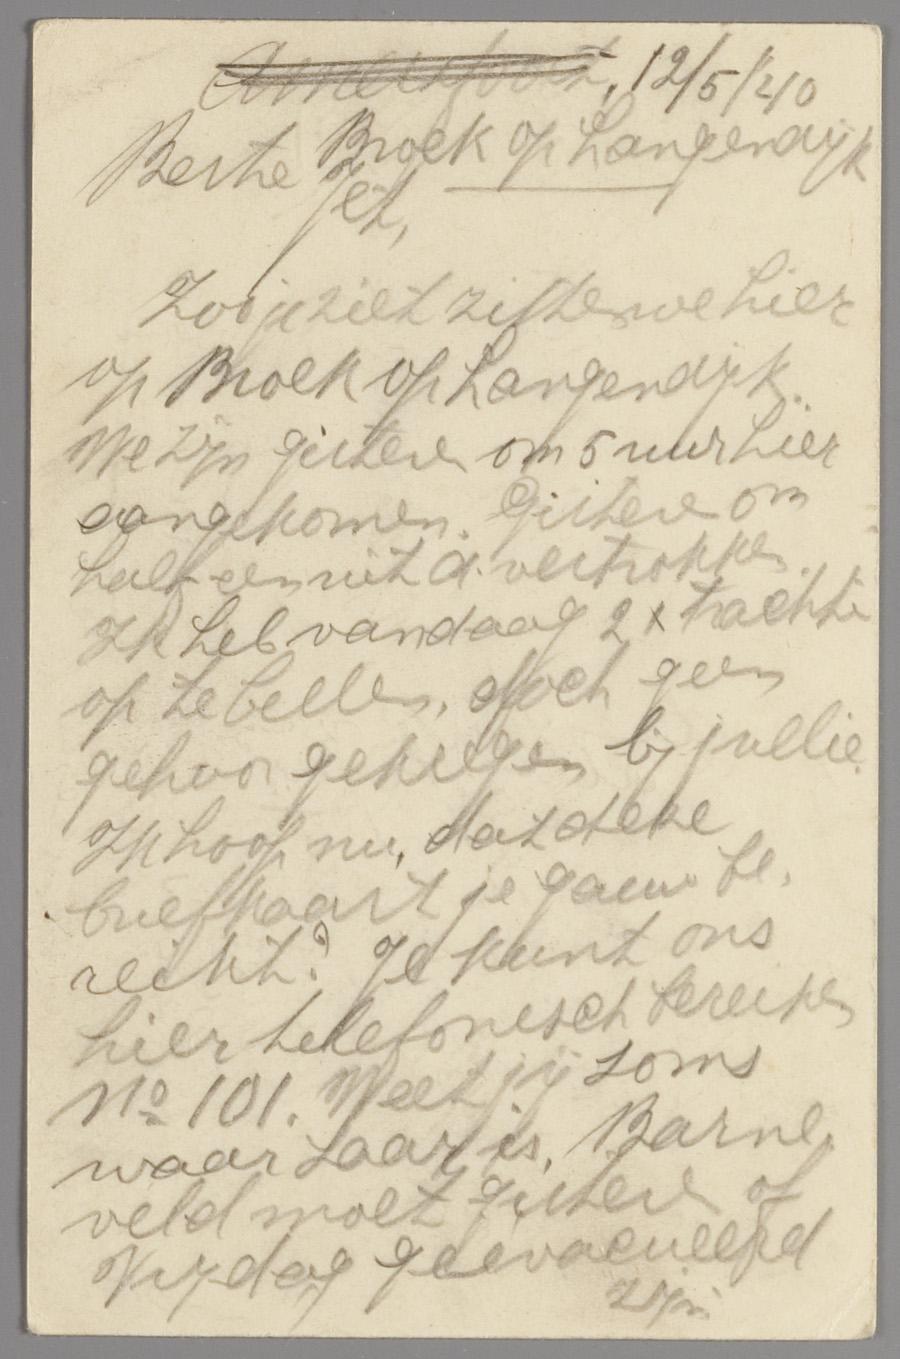 Amersfoort, 12/5/40
Broek op Langendijk
Beste Jet,
Zoo je ziet zitten we hier
op Broek op Langendijk.
We zijn gisteren om 5 uur hier
aangekomen. Gisteren om
half een uit A. vertrokken.
Ik heb vandaag 2 x trachten
op te bellen, doch geen
gehoor gekregen bij jullie.
Ik hoop nu, dat deze
briefkaart je gauw be-
reikt? Je kunt ons
hier telefonisch bereiken
No 101. Weet jij soms
waar Saar is. Barne-
veld moet gisteren of
Vrijdag geevacueerd
zijn